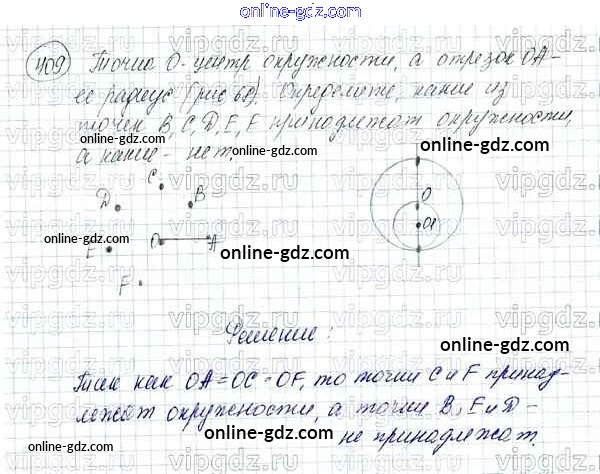 online-gdz.com
409 Точка О - центр окружности, а отрезок ОА -
ее радиус (рис 68). Определите, какие из
точек B, C, D, E, F принадлежат окружности,
а какие - нет.
online-gdz.com
online-gdz.com
C
D
B
O
O1
online-gdz.com
O
A
E
online-gdz.com
online-gdz.com
F
Решение:
online-gdz.com
Так как OA = OC = OF, то точки C и F принад-
лежат окружности, а точки B, E и D -
не принадлежат.
online-gdz.com
online-gdz.com
online-gdz.com
vipgdz.ru